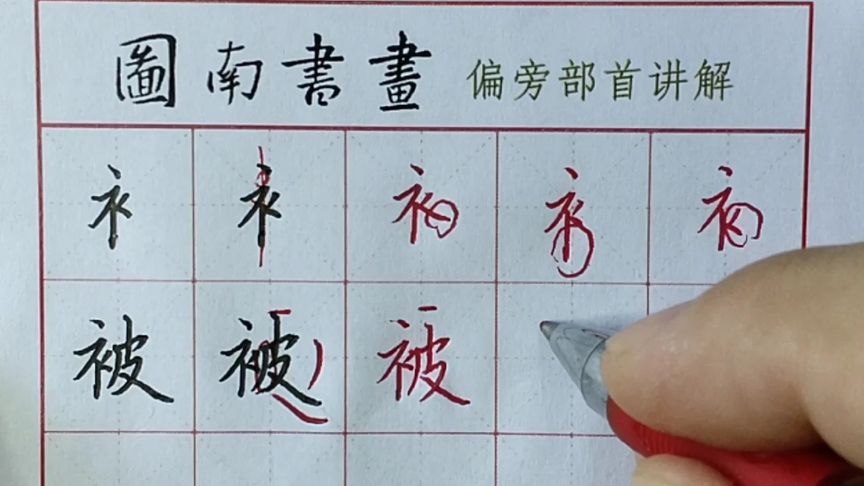 圖南書畫 偏旁部首讲解
衤 衤 衤 衤 衤
被 被 被